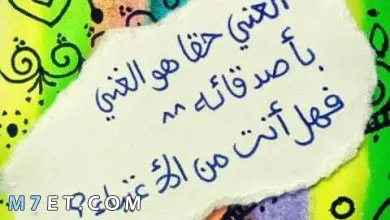 الغني حقا هو الغني
بأصدقائه ^^
فهل أنت من الأغنياء؟
M7ET.COM